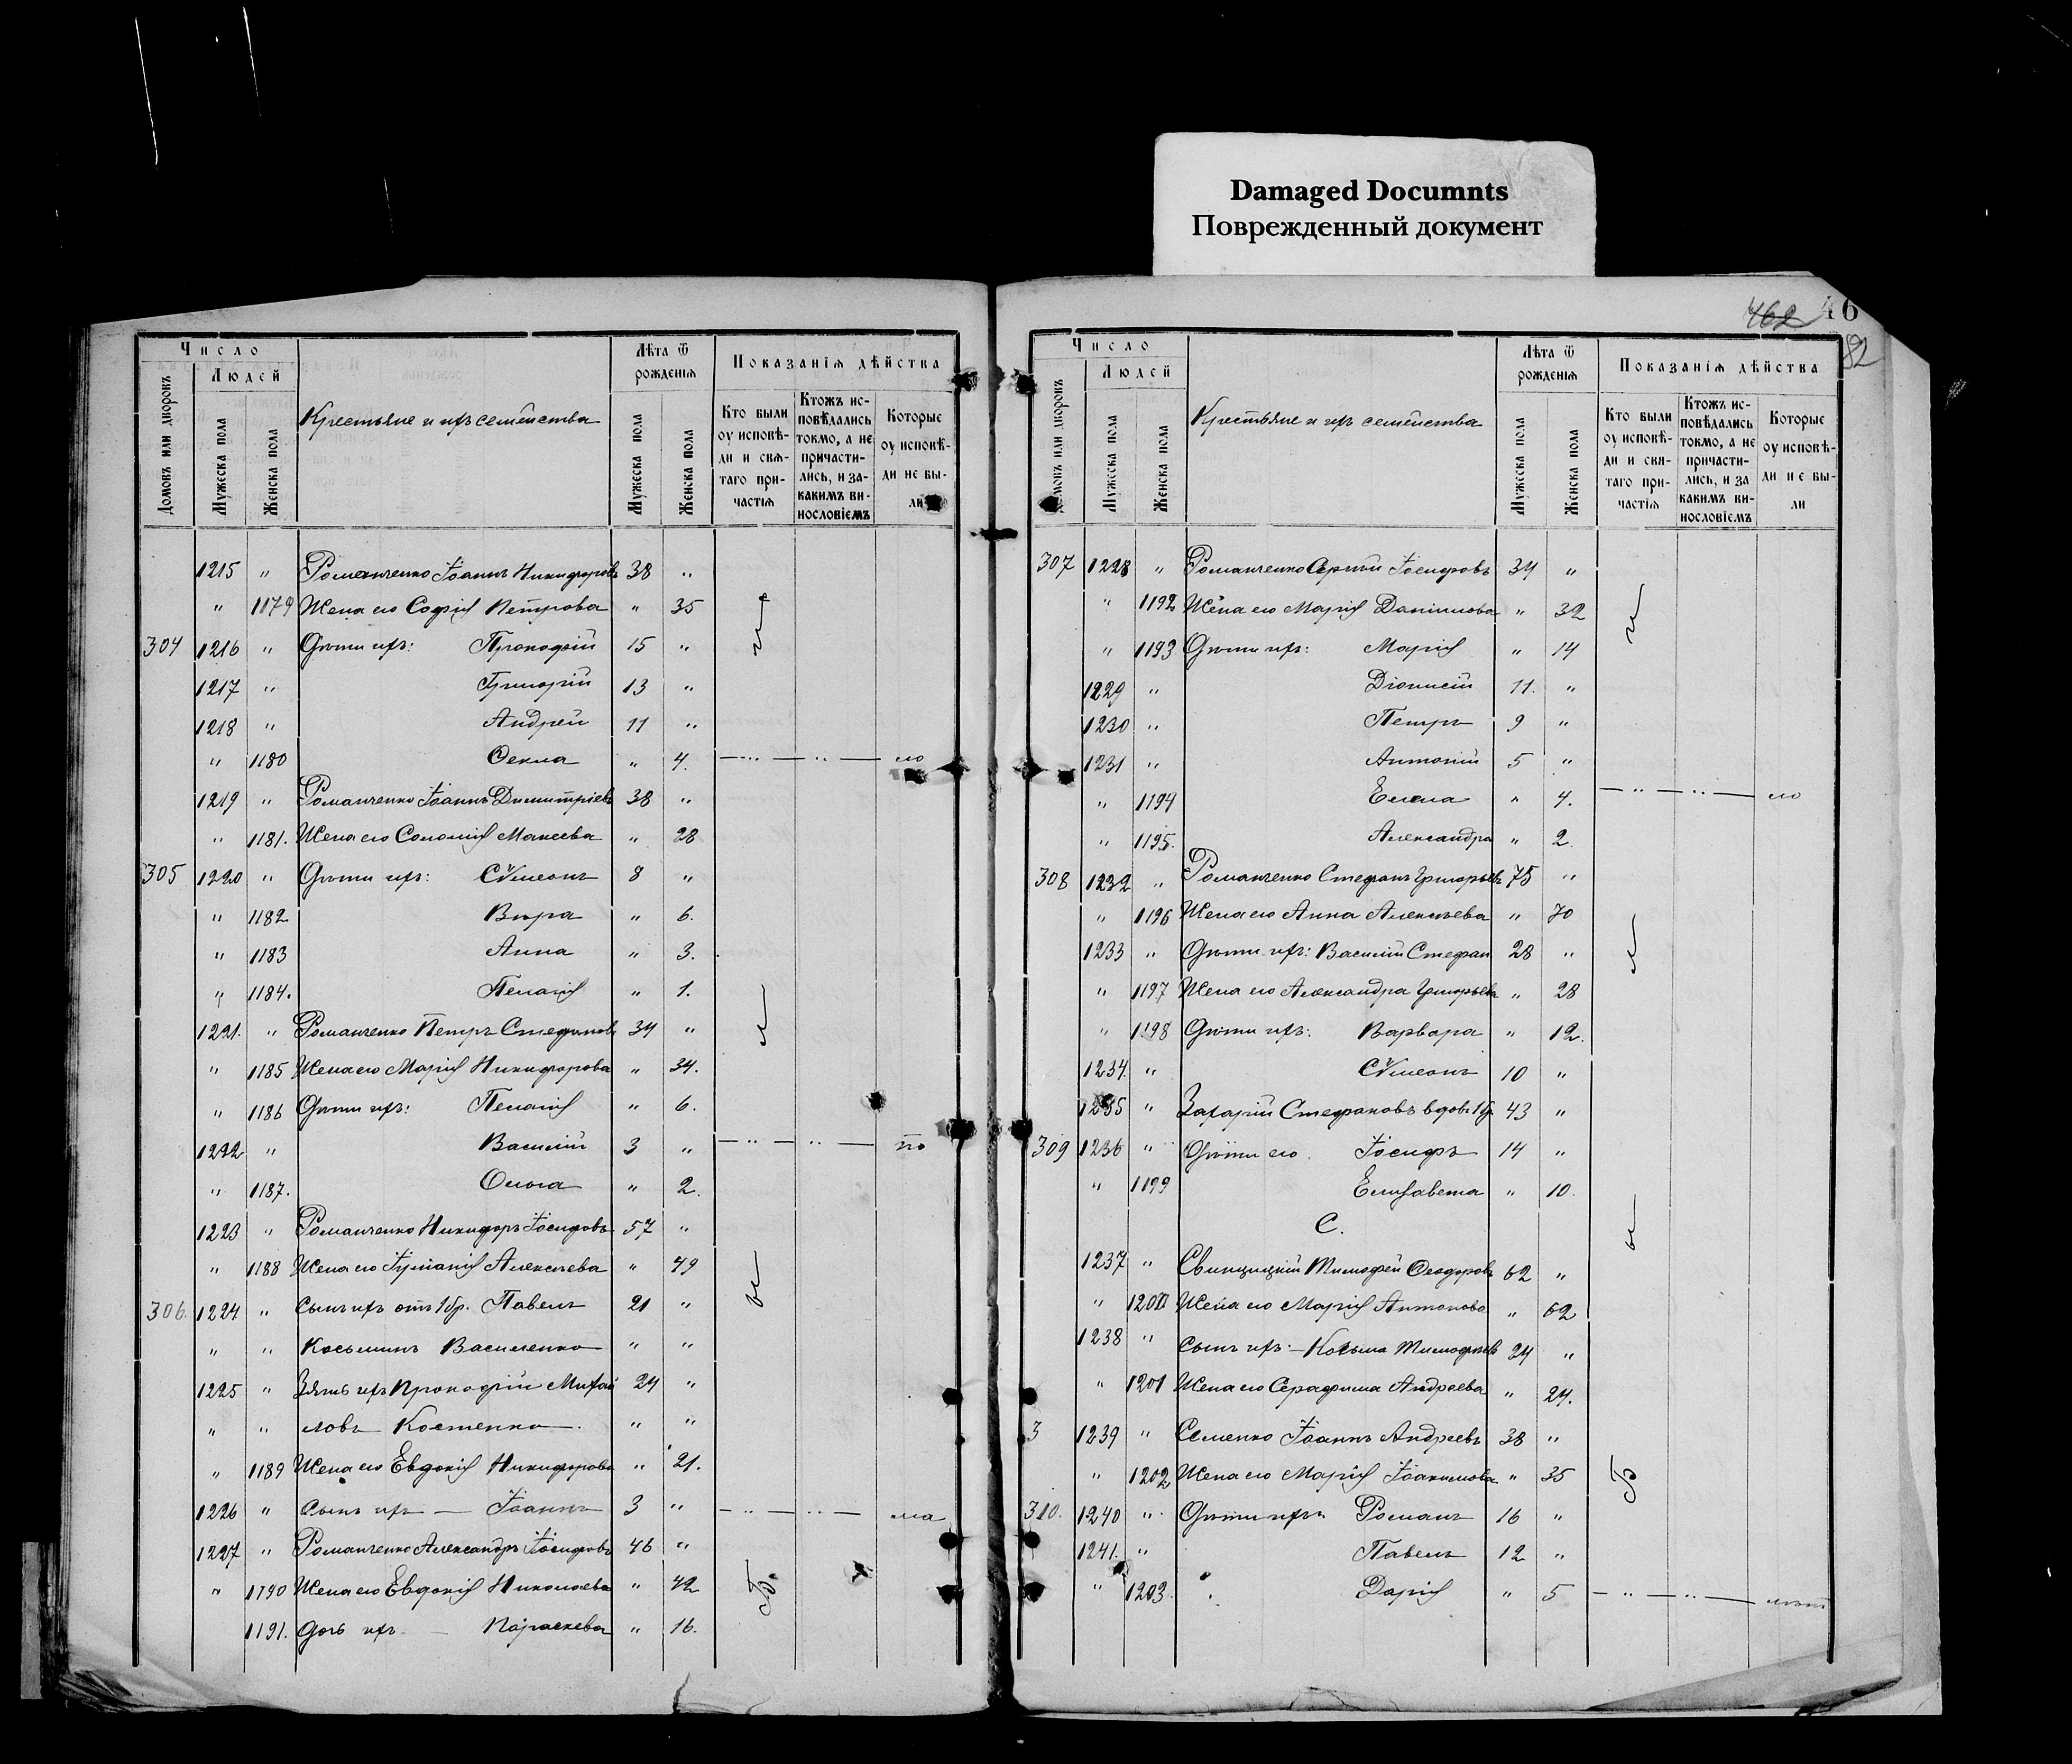 Damaged Documnts
Поврежденный документ
462 46
82
Число
Людей
Домовъ или дворовъ
Мужеска пола
Женска пола
Крестьяне и ихъ семейства
Лѣта ѿ рожденія
Мужеска пола
Женска пола
Показанїѧ дѣйства
Кто были оу исповѣ-
ди и свѧ-
таго при-
частїѧ
Ктожъ ис-
повѣдались
токмо, а не
причасти-
лись, и за-
какимъ ви-
нословїемъ
Которые
оу исповѣ-
ди не бы-
ли
1215 " Романченко Іоаннъ Никифоровъ 38 "
" 1179 Жена его Софія Петрова " 35
304 1216 " Дѣти ихъ: Прокофій 15 "
1217 " Григорій 13 "
1218 " Андрей 11 "
" 1180 Ѳекла " 4. — " — " — ло
1219 " Романченко Іоаннъ Димитріевъ 38 "
" 1181. Жена его Соломія Макеева " 28
305 1220 " Дѣти ихъ: Сѵмеонъ 8 "
" 1182 Вѣра " 6.
" 1183 Анна " 3.
" 1184. Пелагія " 1.
1221. " Романченко Петръ Стефановъ 34 "
" 1185 Жена его Марія Никифорова " 34.
" 1186 Дѣти ихъ: Пелагія " 6.
1222 " Василій 3 " — " — " — по
" 1187. Ольга " 2.
1223 " Романченко Никифоръ Іосифовъ 57 "
" 1188 Жена его Іуліанія Алексѣева " 49
306. 1224 " Сынъ ихъ отъ 1 бр. Павелъ 21 "
" " Косьминъ Василенко " "
1225 " Зять ихъ Прокофій Михаи 24 "
" " ловъ Костенко. " "
" 1189 Жена его Евдокія Никифорова " 21.
1226 " Сынъ ихъ — Іоаннъ 3 " — " — " — ма
1227 " Романченко Александръ Іосифовъ 46 "
" 1190 Жена его Евдокія Николаева " 42
1191. Дочь ихъ — Параскева " 16.
Число
Людей
Домовъ или дворовъ
Мужеска пола
Женска пола
Крестьяне и ихъ семейства
Лѣта ѿ рожденія
Мужеска пола
Женска пола
Показанїѧ дѣйства
Кто были
оу исповѣ-
ди и свѧ-
таго при-
частїѧ
Ктожъ ис-
повѣдались
токмо, а не
причасти-
лись, и за
какимъ ви-
нословїемъ
Которые
оу исповѣ-
ди не бы-
ли
307 1228 " Романченко Сергій Іосифовъ 34 "
" 1192 Жена его Марія Даніилова " 32
" 1193 Дѣти ихъ: Марія " 14
1229 " Діонисій 11. "
1230 " Петръ 9 "
1231 " Антоній 5 "
" 1194 Елена " 4. — " — " — ло
" 1195. Александра " 2.
308 1232 " Романченко Стефанъ Григорьевъ 75 "
" 1196 Жена его Анна Алексѣева " 70
1233 " Дѣти ихъ: Василій Стефан 28 "
" 1197 Жена его Александра Григорьева " 28
" 1198 Дѣти ихъ: Варвара " 12.
1234. " Сѵмеонъ 10 "
1235 " Захарій Стефановъ вдовъ 1 б. 43 "
309 1236 " Дѣти его Іосифъ 14 "
" 1199 Елисавета " 10.
С.
1237 " Свинцицкій Тимофей Ѳеодоровъ 62 "
" 1200 Жена его Марія Антонова " 62
1238 " Сынъ ихъ: — Козьма Тимофеевъ 24 "
" 1201 Жена его Серафима Андреева " 24.
3 1239 " Семенко Іоаннъ Андреевъ 38 "
" 1202 Жена его Марія Іоакимова " 35
310. 1240 " Дѣти ихъ: Романъ 16 "
1241. " Павелъ 12 "
" 1203. Дарія " 5 — " — " —